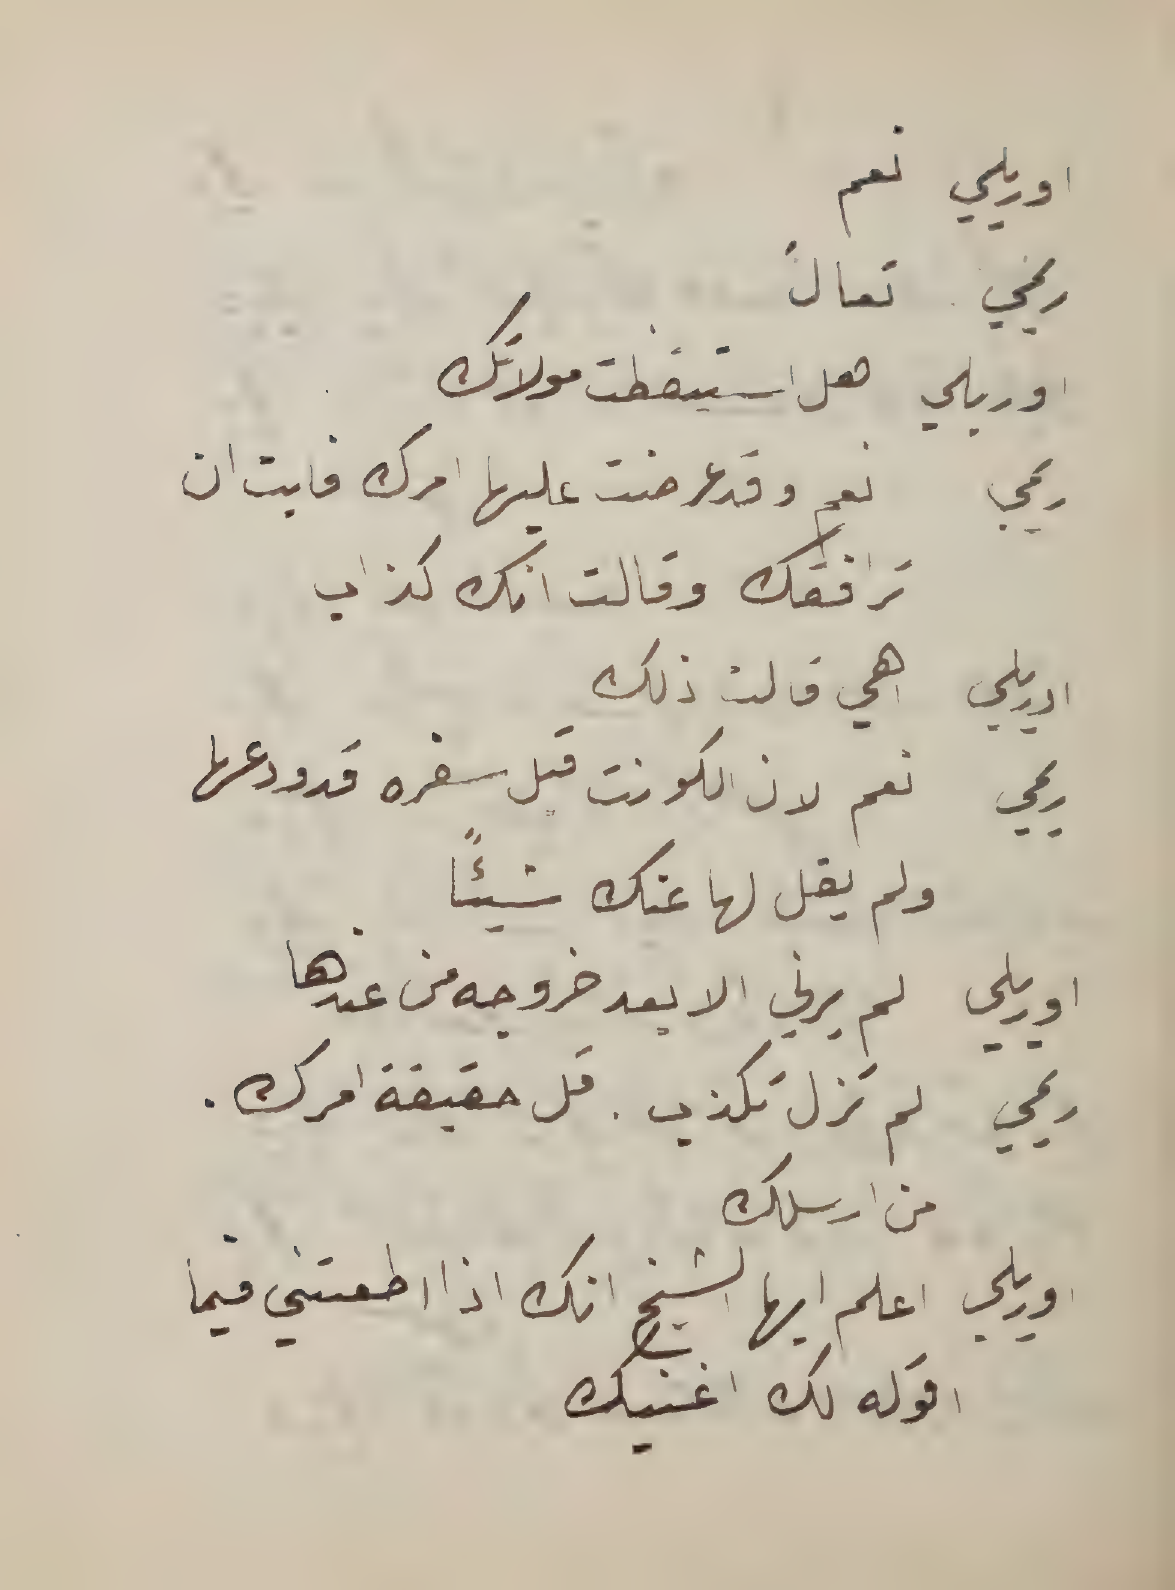 اوريلي نعم
ريمي تعالَ
اوريلي هل استيقظت مولاتك
ريمي نعم وقد عرضت عليها امرك فابت ان
ترافقك وقالت انك كذاب
اوريلي اهي قالت ذلك
ريمي نعم لان الكونت قبل سفره قد ودعها
ولم يقل لها عنك شيئًا
اوريلي لم يرني الا بعد خروجه من عندها
ريمي لم تزل تكذب . قل حقيقة امرك .
من ارسلك
اوريلي اعلم ايها الشيخ انك اذا اطعتني فيما
اقوله لك اغنيك